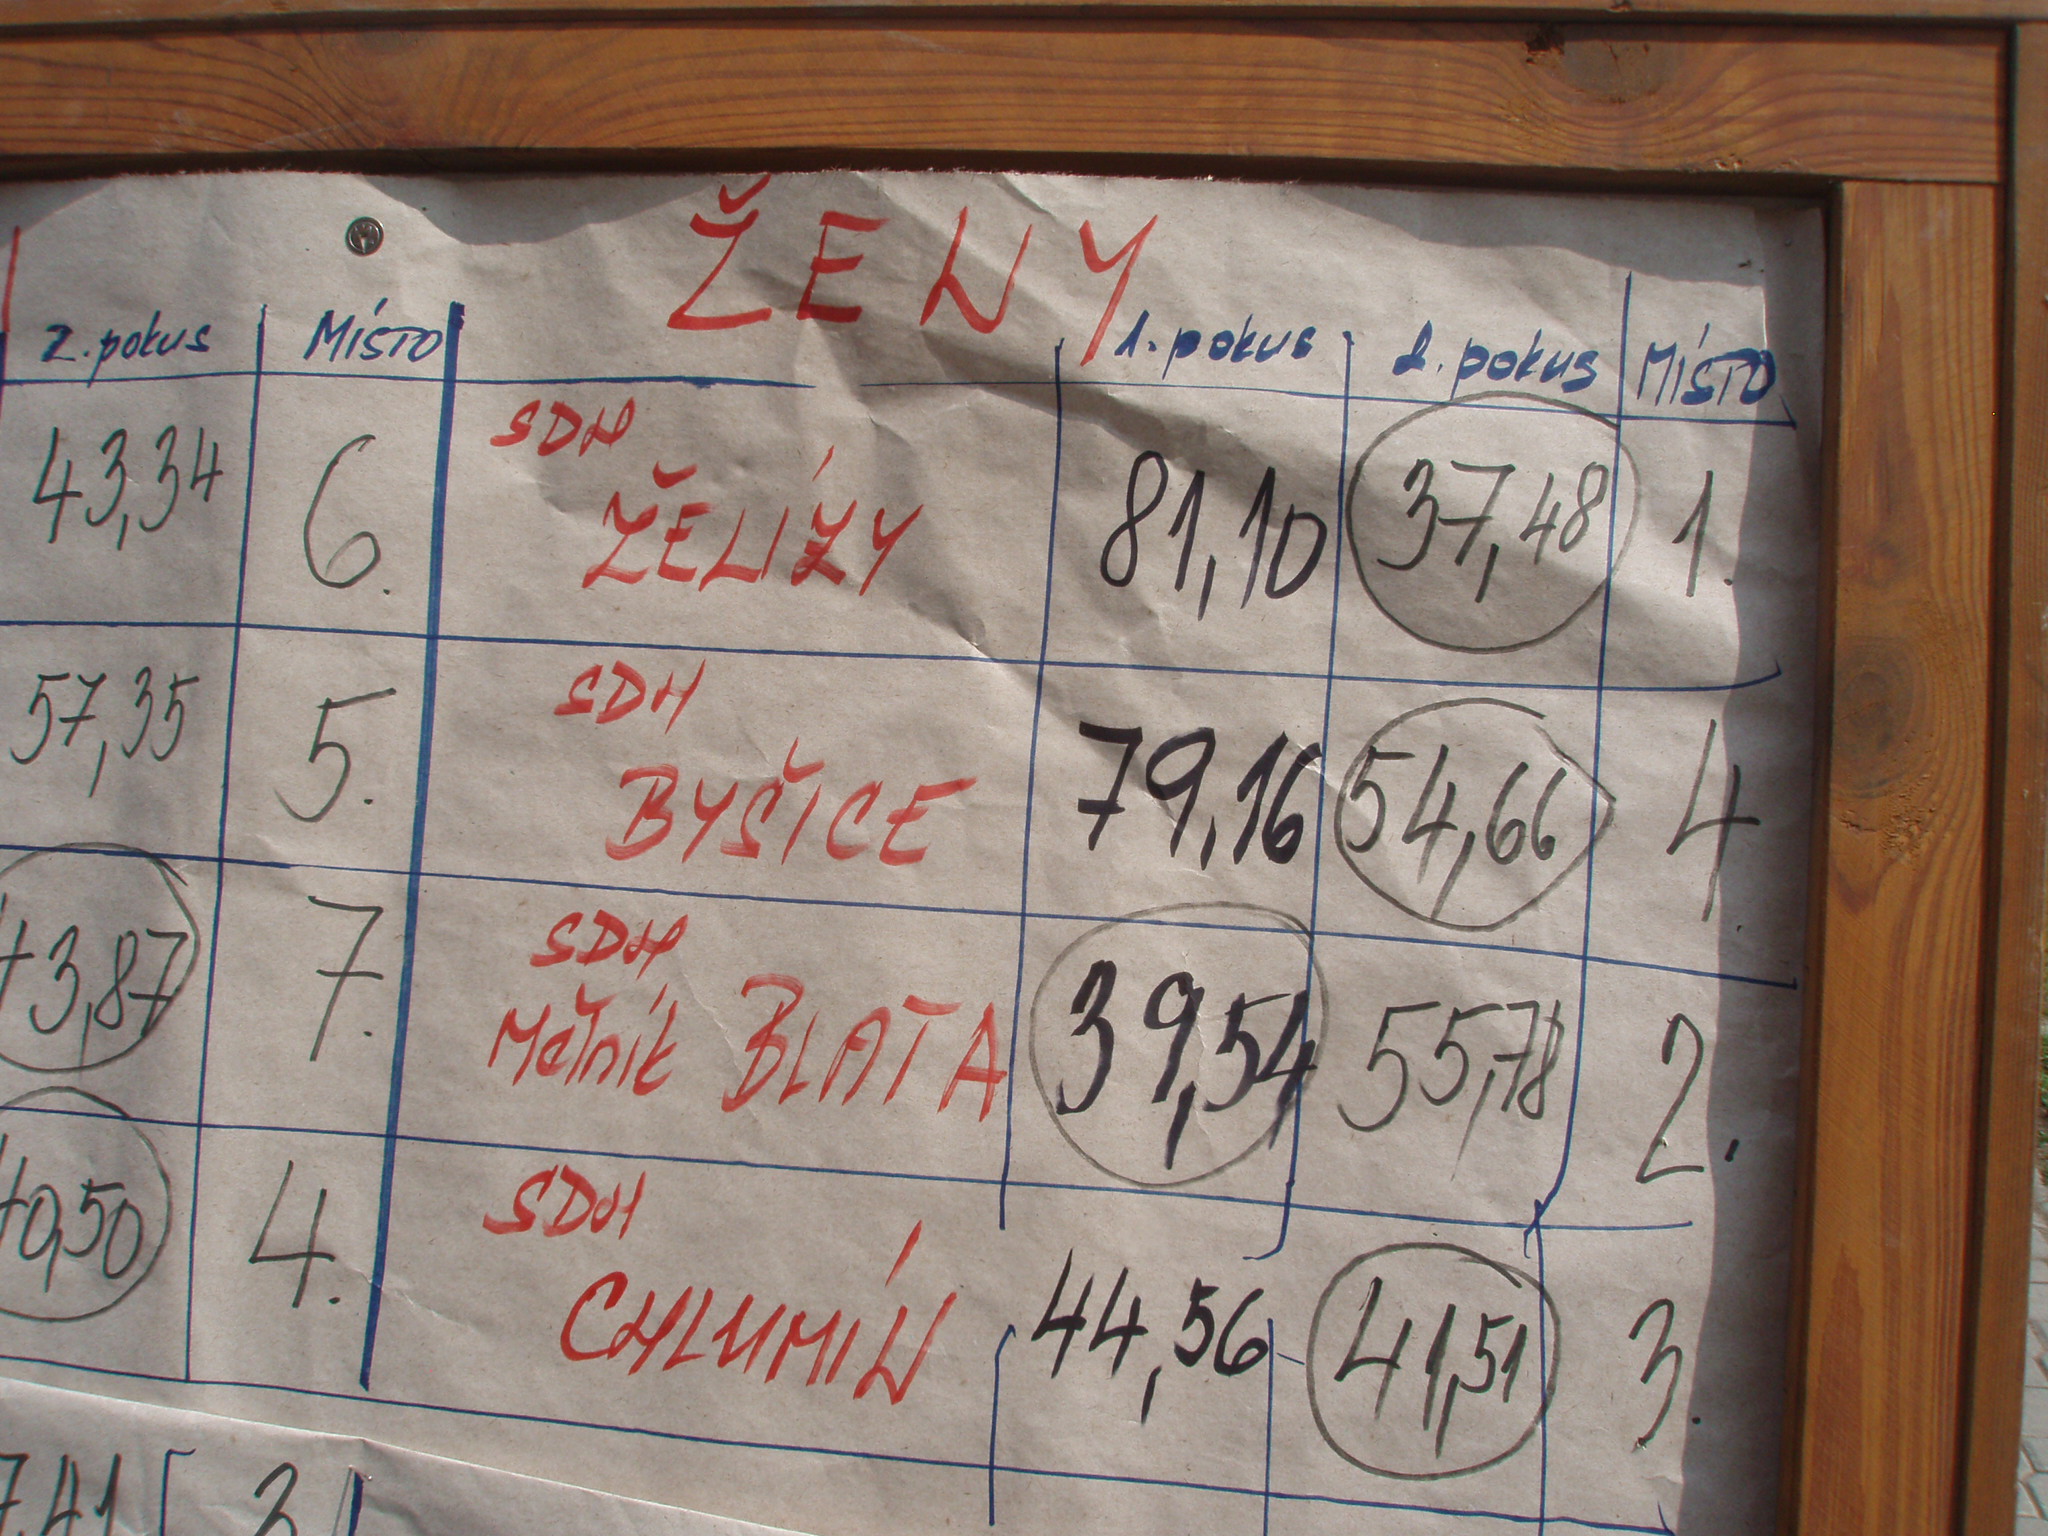 ŽENY
2. pokus Místo 1. pokus 2. pokus Místo
SDH
43,34 6. ŽELÍZY 81,10 37,48 1.
SDH
57,35 5. BYŠICE 79,16 54,66 4.
SDH
43,87 7. Mělník BLATA 39,54 55,78 2.
SDH
40,50 4. CHLUMÍN 44,56 41,51 3.
7,41 3